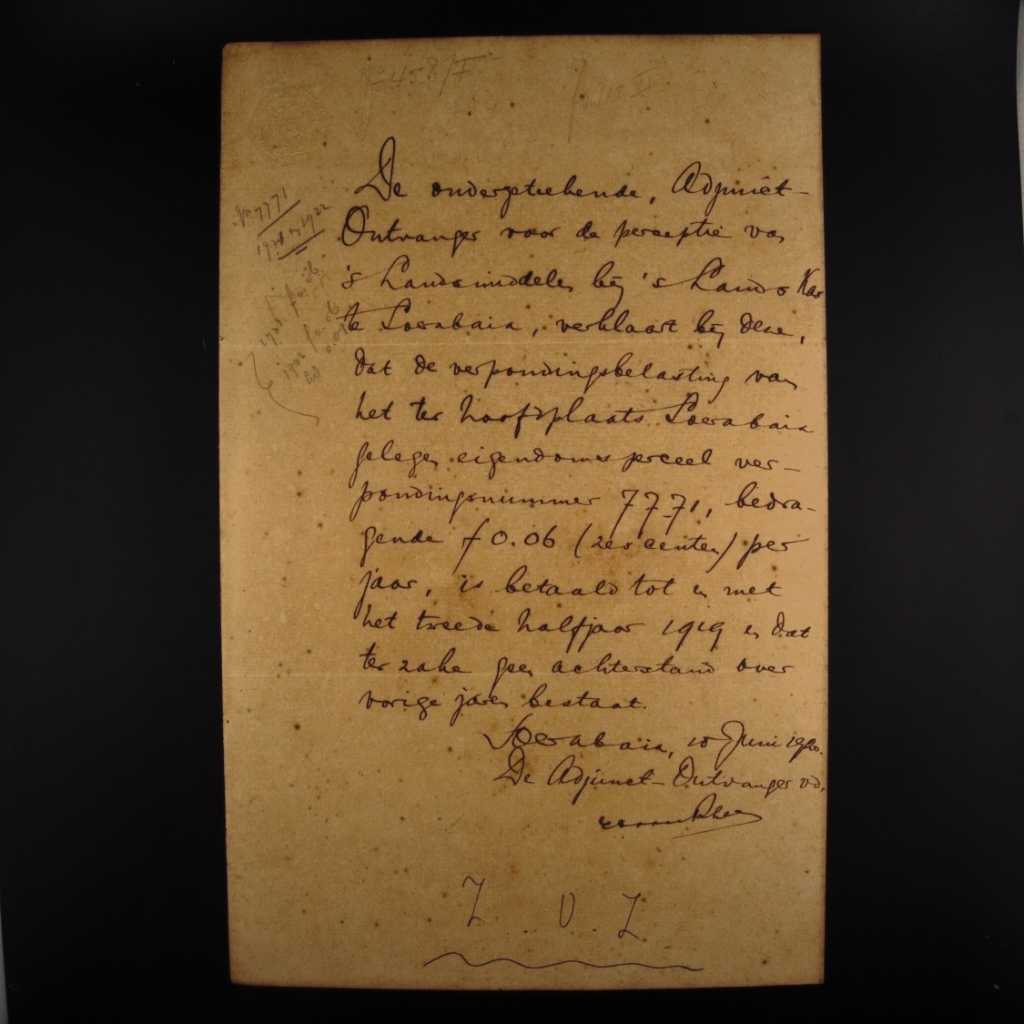 458/F
No 7771
1921 en 1922
De ondergeteekende, Adjunct-
Ontvanger voor de perceptie van
's Landsmiddelen bij 's Lands Kas
te Soerabaia, verklaart bij deze,
dat de verpondingsbelasting van
het ter hoofdplaats Soerabaia
gelegen eigendoms perceel ver-
pondingsnummer 7771, bedra-
gende f 0.06 (zes centen) per
jaar, is betaald tot en met
het tweede halfjaar 1919 en dat
ter zake geen achterstand over
vorige jaren bestaat.
Soerabaia, 10 Juni 1920.
De Adjunct-Ontvanger vd.
Z O Z